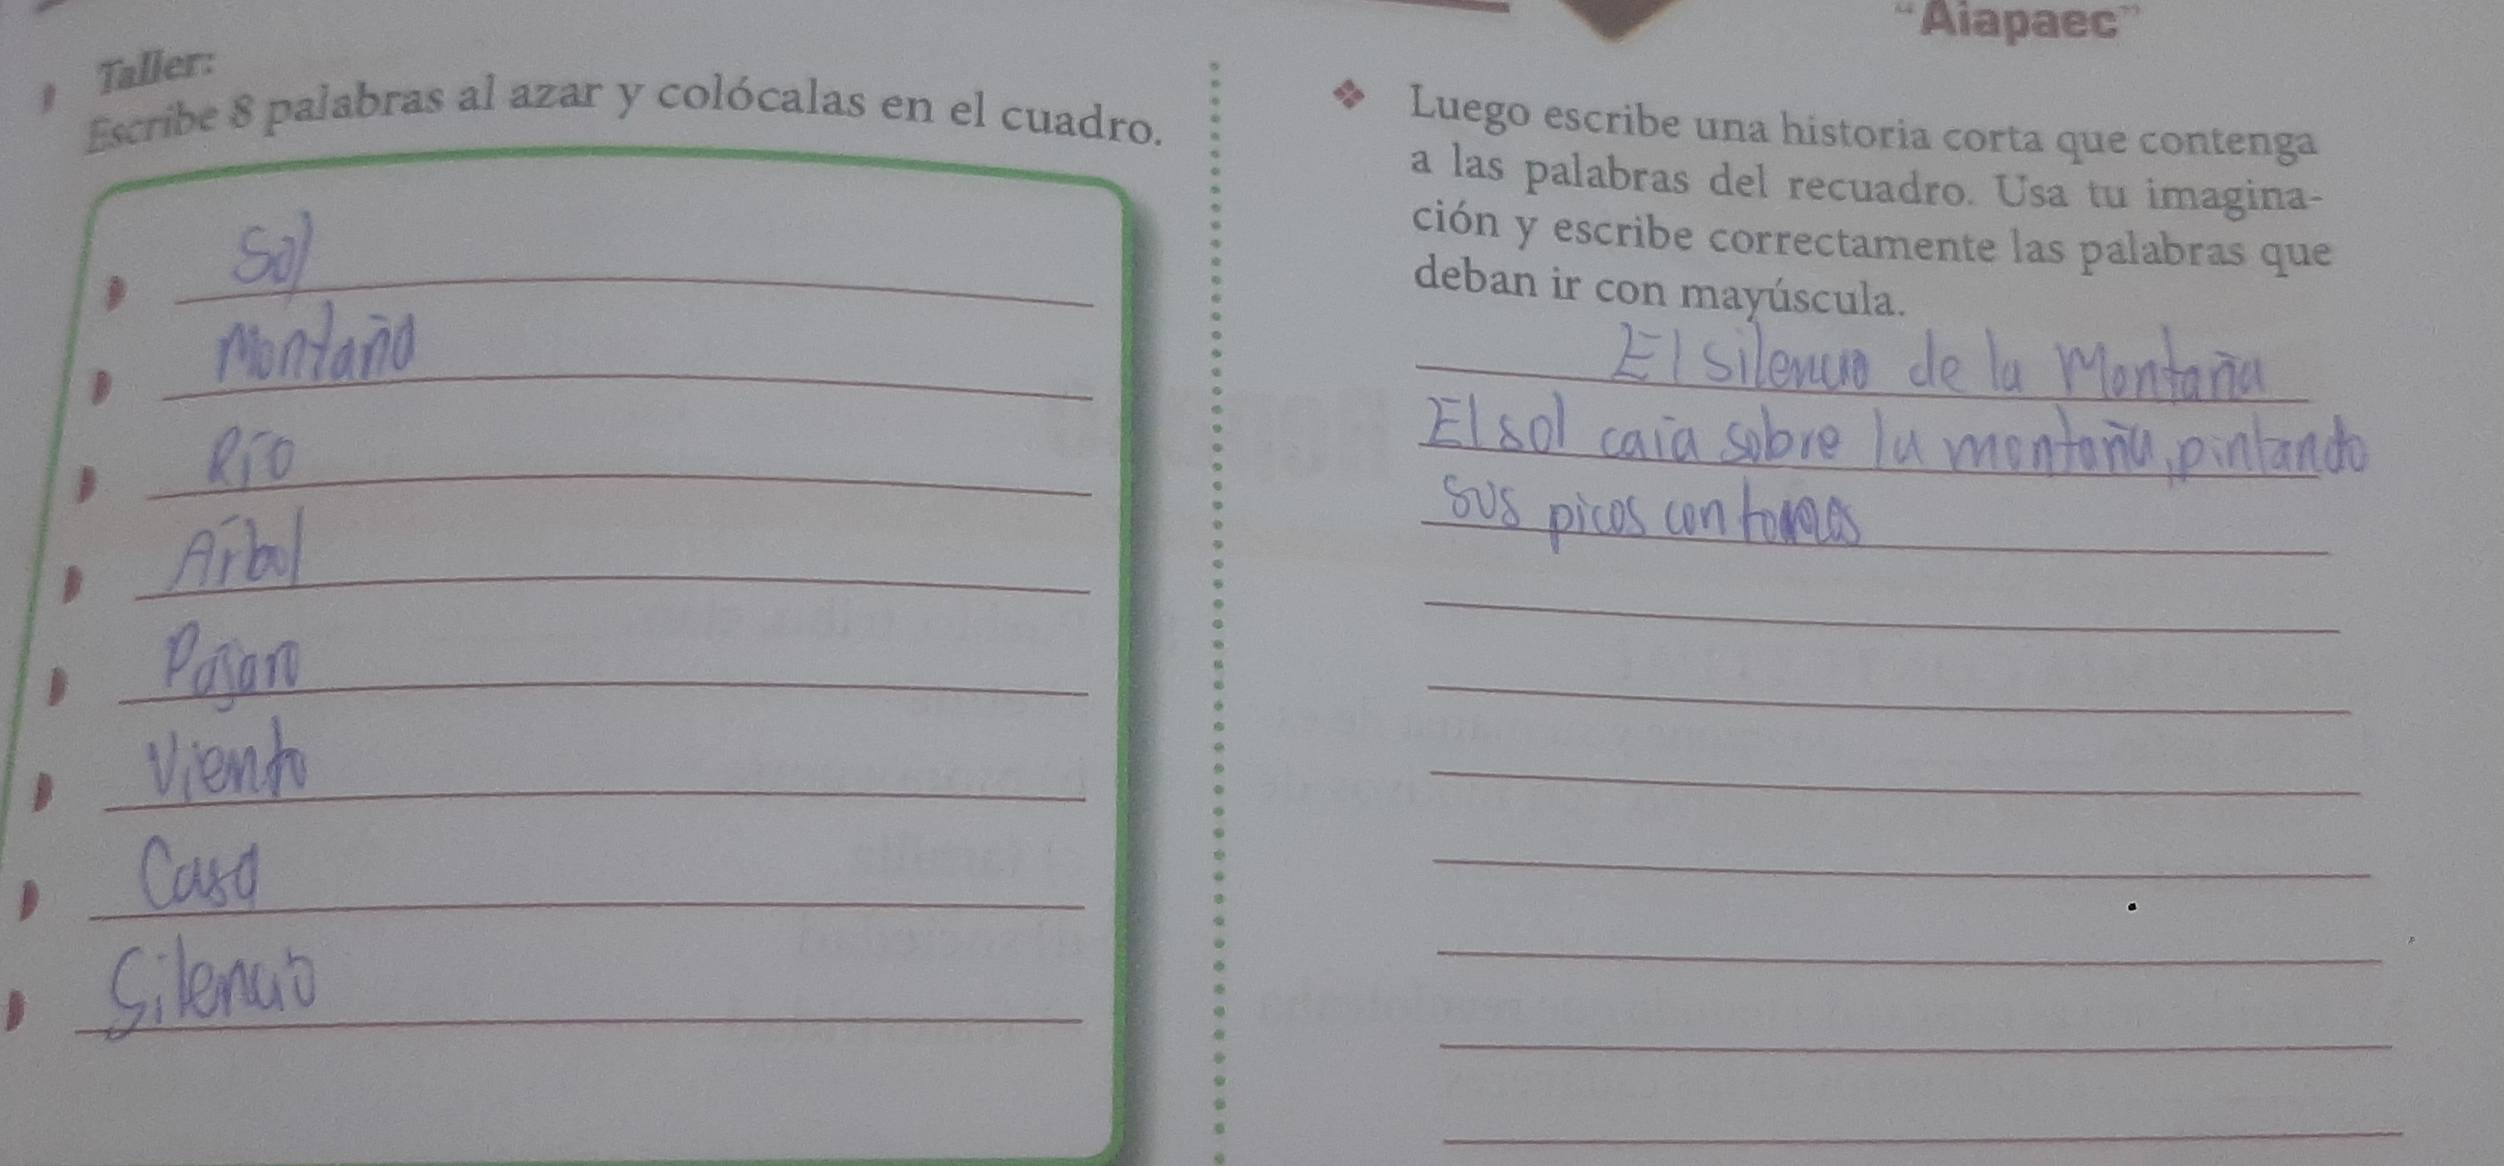 “Aiapaec”
Taller:
Escribe 8 palabras al azar y colócalas en el cuadro.
Sol
Montaña
Río
Árbol
Pajaro
Viento
Casa
Silencio
Luego escribe una historia corta que contenga
a las palabras del recuadro. Usa tu imagina-
ción y escribe correctamente las palabras que
deban ir con mayúscula.
El silencio de la Montaña
El sol caía sobre la montaña, pintando
sus picos con